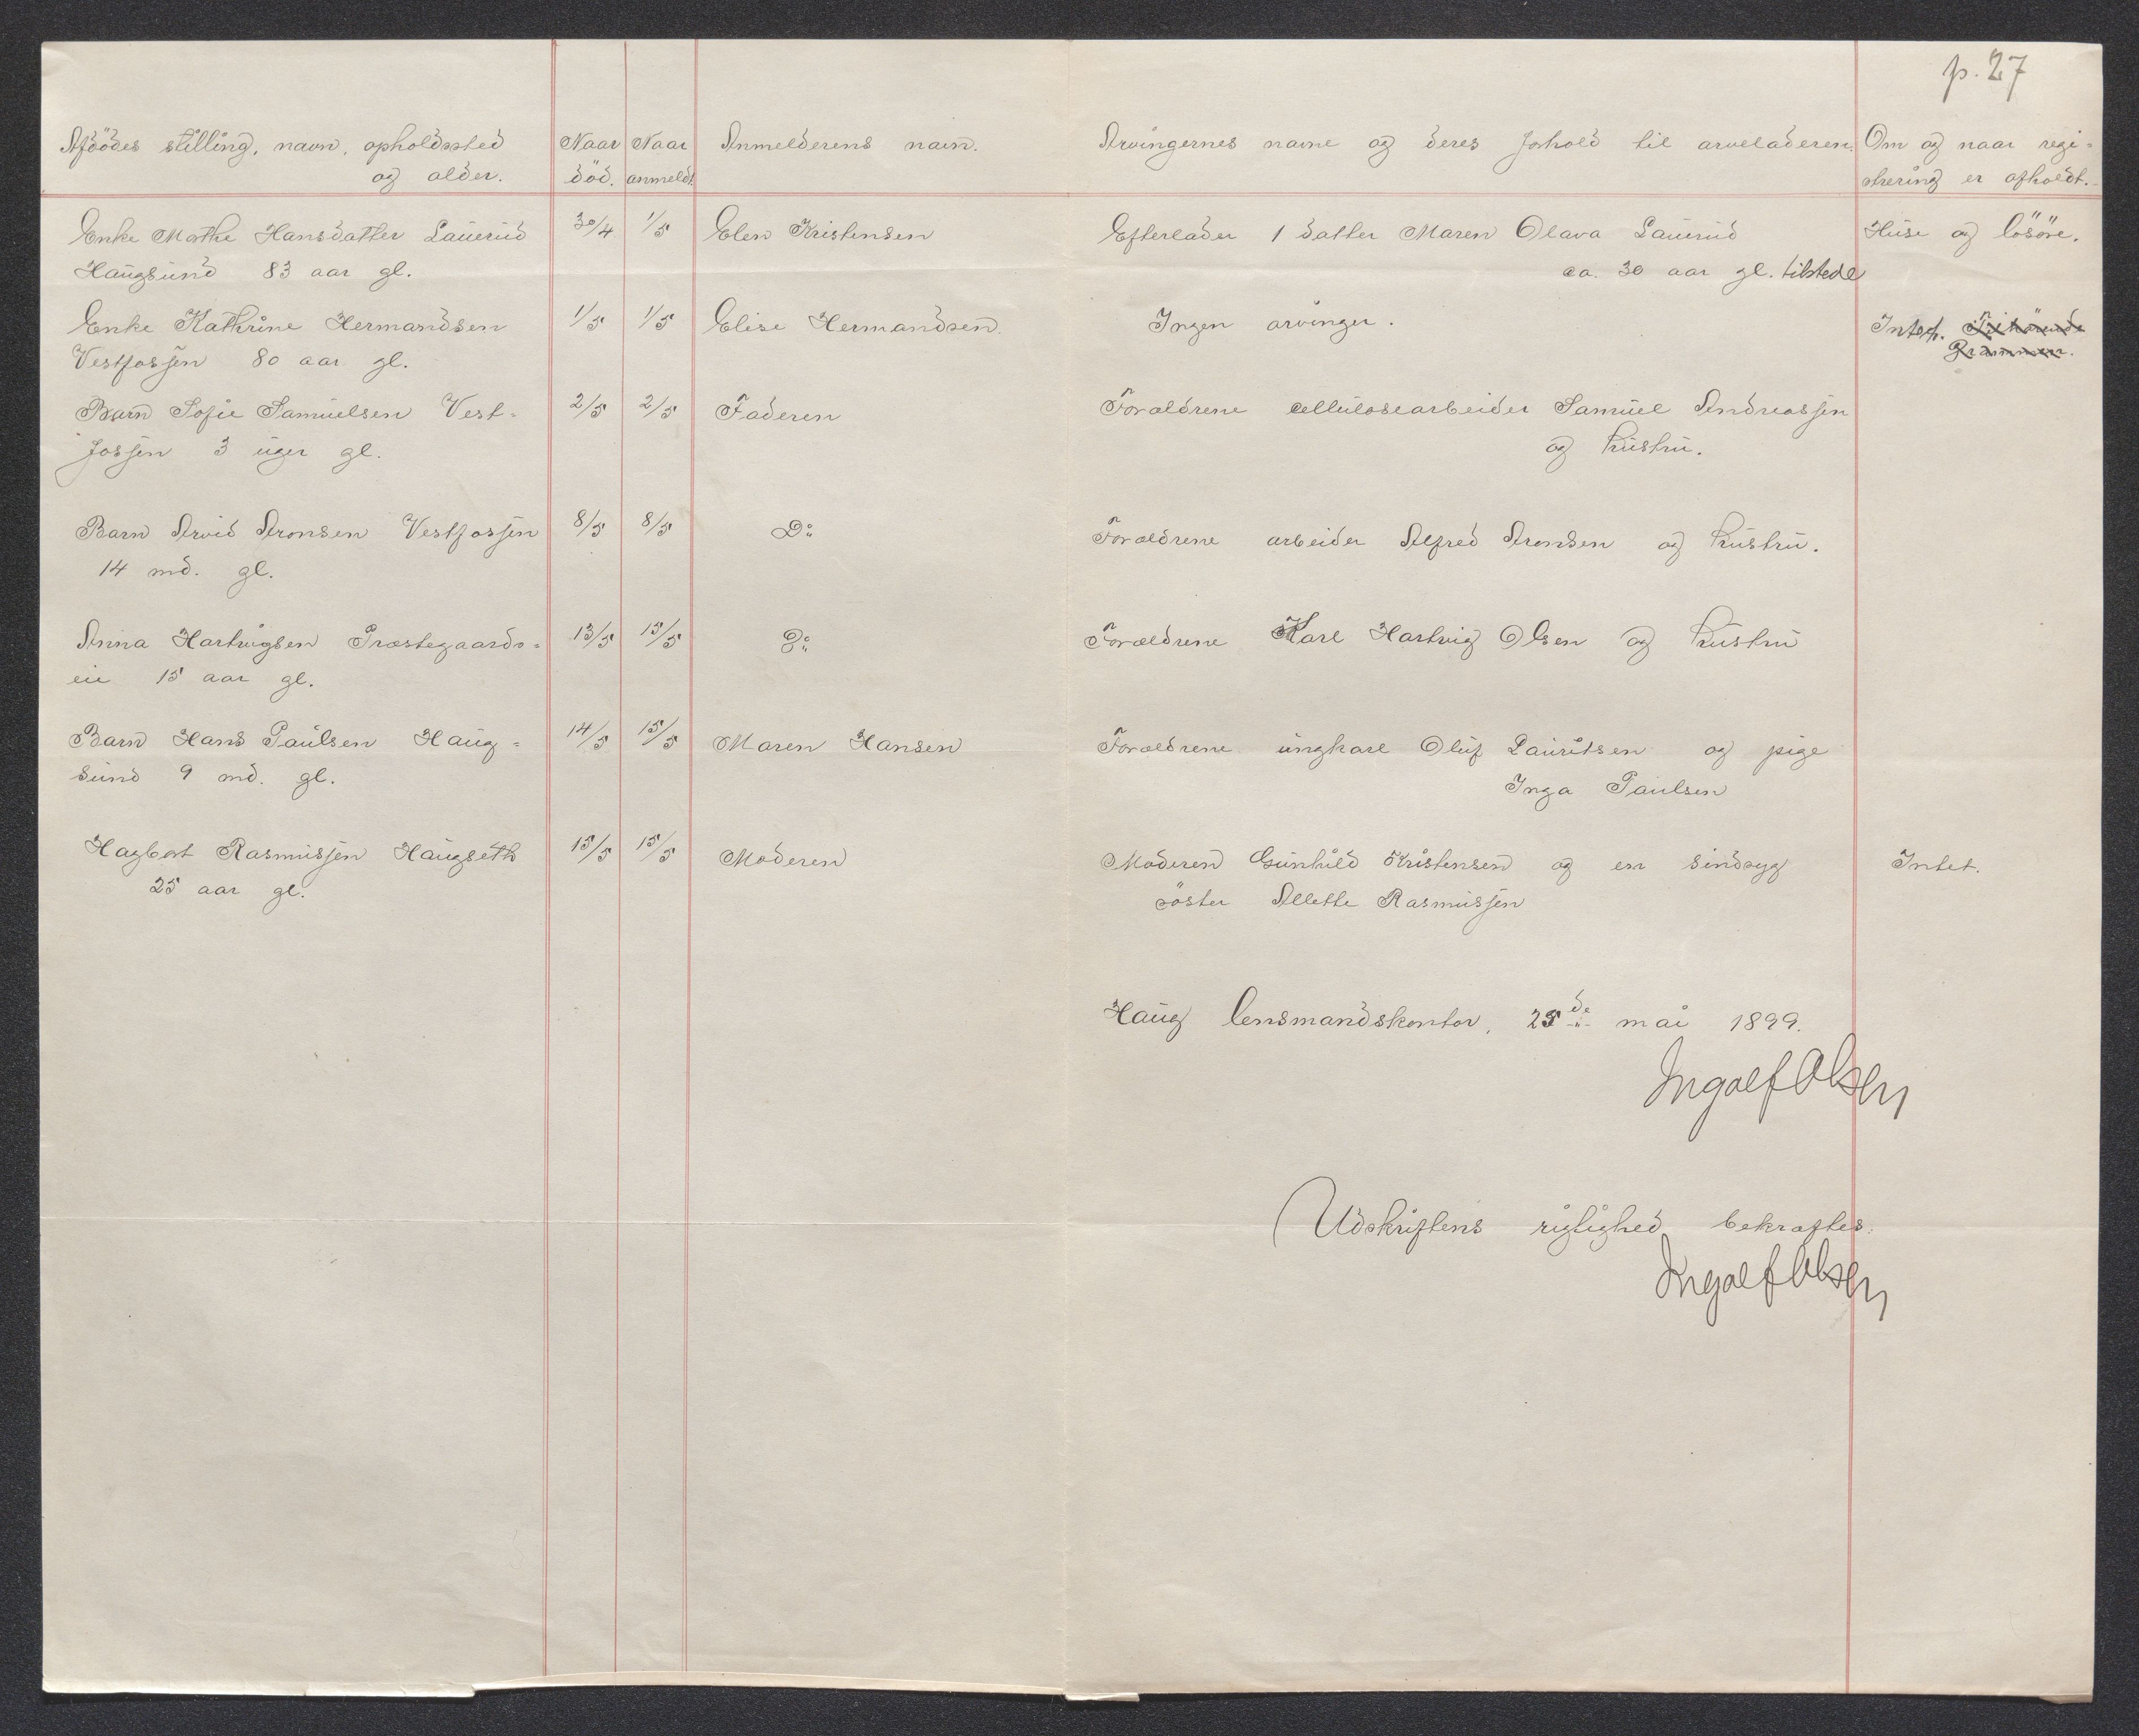 p. 27
Afdödes stilling, navn, opholdssted
og alder.
Naar
död.
Naar
anmeldt
Anmelderens navn.
Arvingernes navne og deres forhold til arveladeren.
Om og naar regi-
strering er afholdt.
Enke Mathe Hansdatter Lauerud
Haugsund 83 aar gl.
30/4 1/5 Elen Kristensen
Efterlader 1 datter Maren Olava Lauerud
ca. 30 aar gl. tilstede
Huse og lösöre.
Enke Kathrine Hermandsen
Vestfossen 80 aar gl.
1/5 1/5 Elise Hermandsen
Ingen arvinger.
Intet.
Barn Sofie Samuelsen Vest-
fossen 3 uger gl.
2/5 2/5 Faderen
Forældrene cellulosearbeider Samuel Andreassen
og hustru.
Barn Arvid Aronsen Vestfossen
14 md. gl.
8/5 8/5 Do
Forældrene arbeider Alfred Aronsen og hustru.
Anna Hartvigsen Præstegaards-
eie 15 aar gl.
13/5 15/5 Do
Forældrene Karl Hartvig Olsen og hustru
Barn Hans Paulsen Haug-
sund 9 md. gl.
14/5 15/5 Maren Hansen
Forældrene ungkarl Oluf Lauritsen og pige
Inga Paulsen
Hagbart Rasmussen Haugseth
25 aar gl.
15/5 15/5 Moderen
Moderen Gunhild Kristensen og en sindsyg
söster Allette Rasmussen
Intet.
Haug lensmandskontor, 25de mai 1899.
Ingolf Olsen
Udskriftens rigtighed bekræftes.
Ingolf Olsen